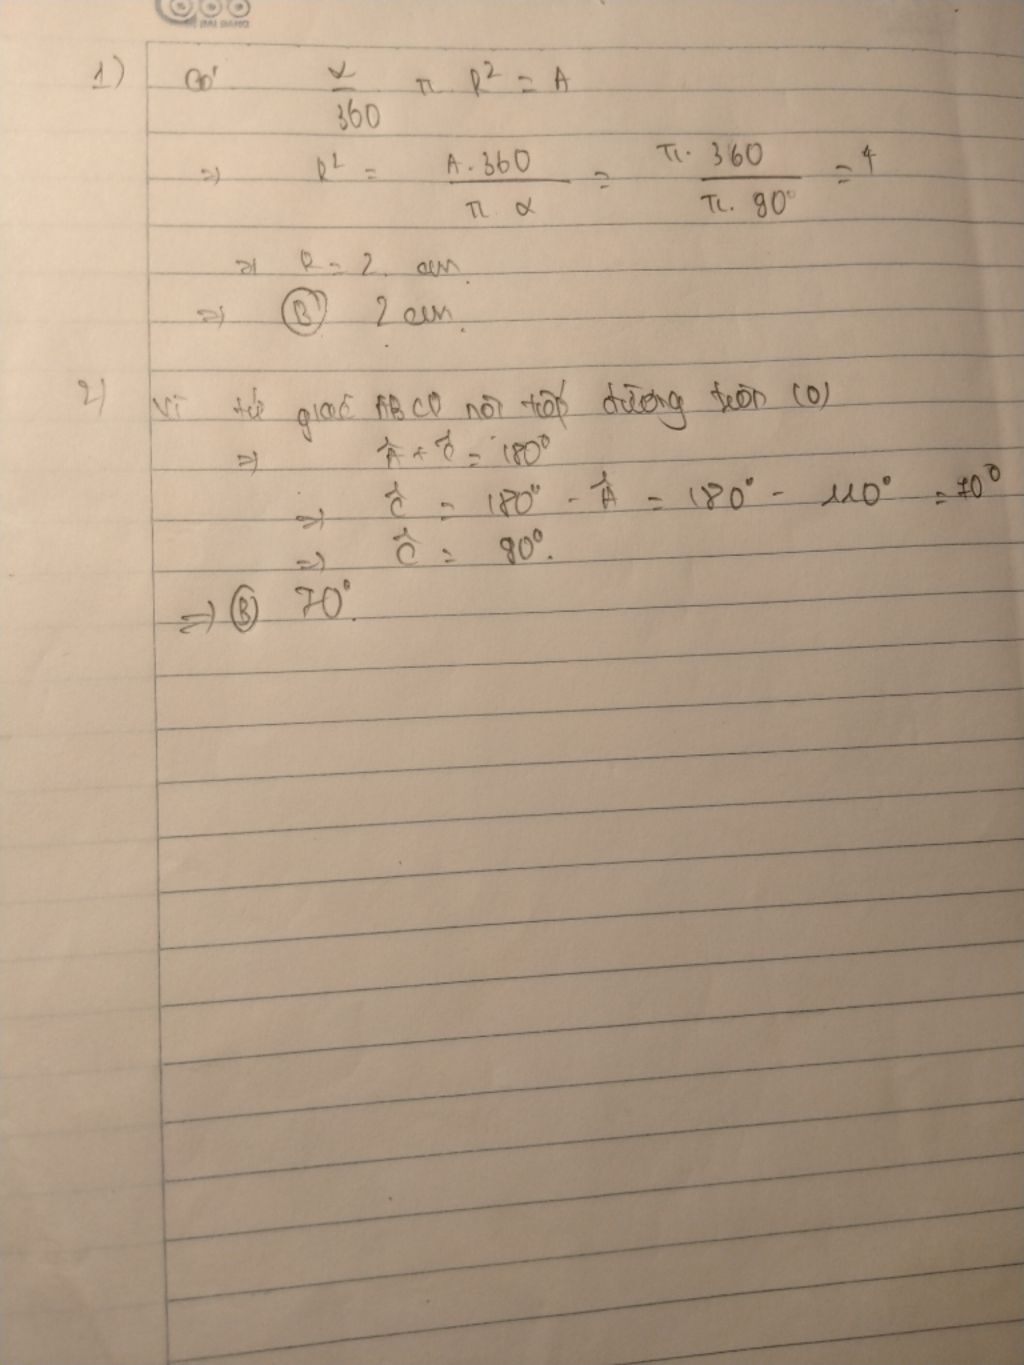 1) Có α/360 π. R² = A
=> R² = A.360/π α = π. 360/π. 90° = 4
=> R = 2. cm.
=> (B) 2 cm.
2) Vì tứ giác ABCD nội tiếp đường tròn (O)
=> Â + Ĉ = 180°
=> Ĉ = 180° - Â = 180° - 110° = 70°
=> Ĉ = 90°.
=> (B) 70°.